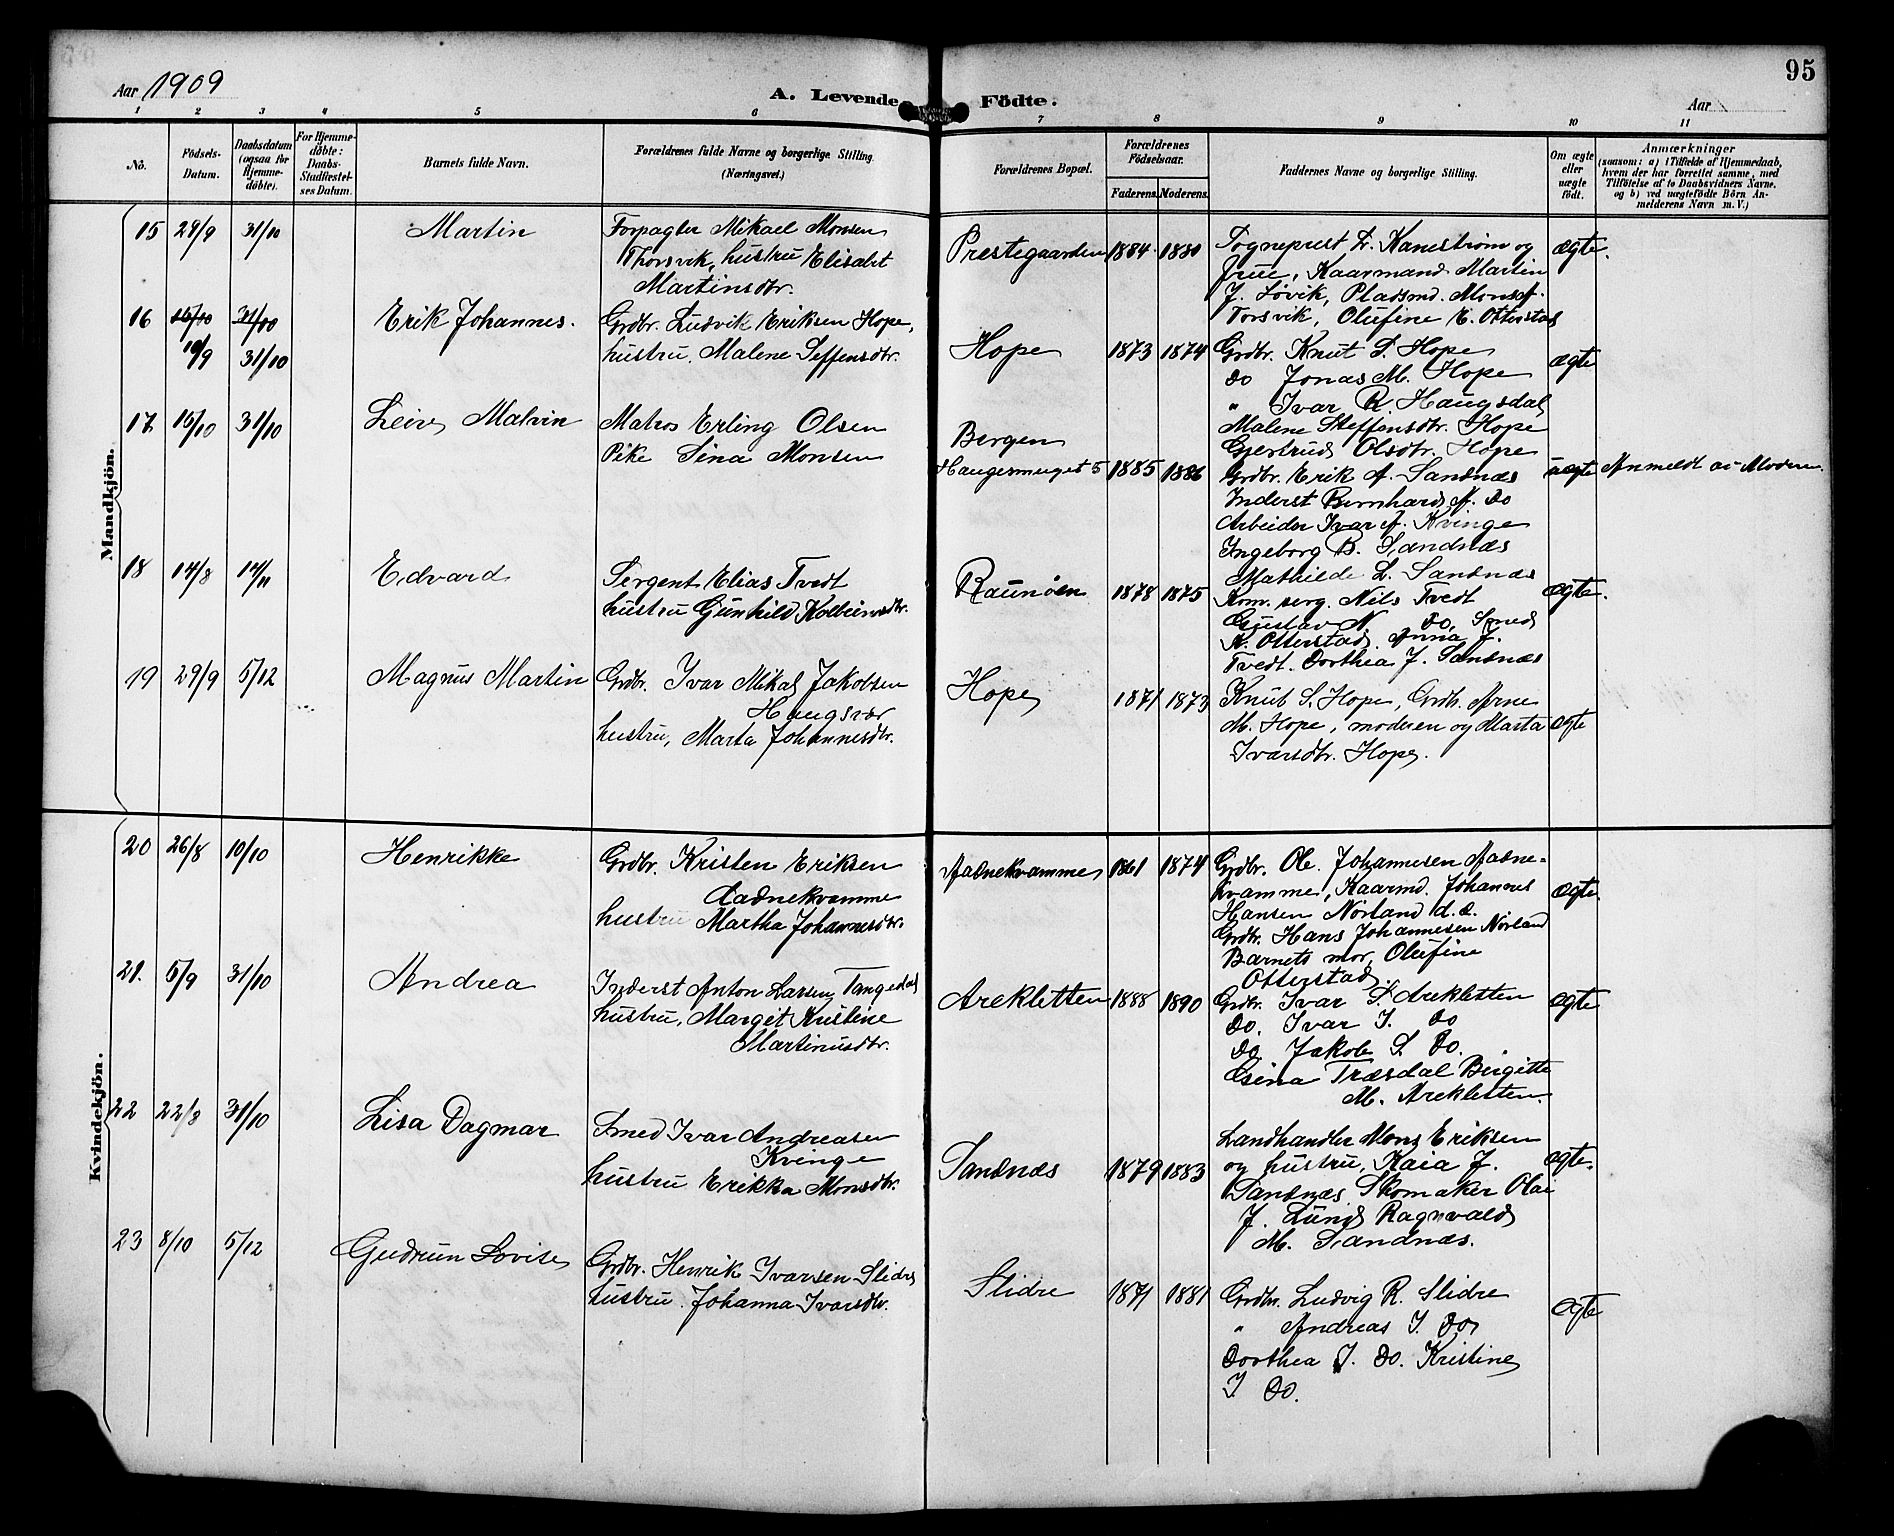 95
Aar 1909
A. Levende Födte.
Aar
1 2 3 4 5 6 7 8 9 10 11
No.
Födsels-
Datum.
Daabsdatum
(ogsaa for
Hjemme-
döbte).
For Hjemme-
döbte:
Daabs-
Stadfæstel-
ses Datum.
Barnets fulde Navn.
Forældrenes fulde Navne og borgerlige Stilling
(Næringsvei.)
Forældrenes Bopæl.
Forældrenes
Födselsaar.
Faderens. Moderens.
Faddernes Navne og borgerlige Stilling.
Om ægte
eller
uægte
födt.
Anmærkninger
(saasom: a) i Tilfælde af Hjemmedaab,
hvem der har forrettet samme, med
Tilföielse af to Daabsvidners Navne.
og b) ved uægtefödte Börn An-
melderens Navn m. V.)
Mandkjön.
15 29/9 31/10 Martin
Forpagter Mikael Monsen
Thorsvik, hustru Elisabet
Martinsdtr.
Prestegaarden 1884 1880
Sogneprest L. Kanestrøm og
frue, Kaarmand Martin
J. Løvik, Pladsmd. Mons A.
Torsvik, Olufine E. Otterstad
ægte.
16 16/10 31/10 Erik Johannes.
10/9 31/10
Grdbr. Ludvik Eriksen Hope,
hustru, Malene Seffensdtr.
Hope 1873 1874
Grdbr. Knut S. Hope
do Jonas M. Hope
" Ivar R. Haugsdal
Malene Steffensdtr. Hope
Gjertrud Olsdtr. Hope
ægte
17 15/10 31/10 Leiv Malvin
Matros Erling Olsen
Pike Sina Monsen
Bergen
Haugesmuget 5 1885 1886
Grdbr. Erik A. Sandnæs
Inderst Bernhard A. do
Arbeider Ivar A. Kvinge
Ingeborg B. Sandnæs
Mathilde L. Sandnæs
uægte Anmeldt av Moderen.
18 14/8 14/11 Edvard
Sergent Elias Tvedt
hustru Gunhild Kolbeinsdtr.
Raunøen 1878 1875
Kom. serg. Nils Tvedt
Gustav N. do, Smed
K. Otterstad, Anna J.
Tvedt. Dorthea J. Sandnæs
ægte.
19 29/9 5/12 Magnus Martin
Grdbr. Ivar Mikal Jakobsen
Haugsvær
hustru, Marta Johannesdtr.
Hope 1871 1873
Knut S. Hope, Grdb. Arne
M. Hope, moderen og Marta
Ivarsdtr. Hope.
ægte
Kvindekjön.
20 26/8 10/10 Henrikke
Grdbr. Kristen Eriksen
Aadnekvamme
hustru Martha Johannesdtr.
Aadnekvamme 1861 1874
Grdbr. Ole Johannesen Aadne-
kvamme, Kaarmd. Johannes
Hansen Nørland d.æ.
Grdbr. Hans Johannesen Nørland
Barnets mor, Olufine
Otterstad
ægte.
21. 5/9 31/10 Andrea
Inderst Anton Larsen Tangedal
hustru, Margit Kristine
Martinusdtr.
Arekletten 1888 1890
Grdbr. Ivar S. Arekletten
do. Ivar I. do
do. Jakob S. do.
Gsina Træsdal Birgitte
M. Arekletten.
ægte
22 22/8 31/10 Lisa Dagmar
Smed Ivar Andreasen
Kvinge
hustru Erikka Monsdtr.
Sandnæs 1879 1883
Landhandler Mons Eriksen
og hustru, Kaia J.
Sandnæs, Skomaker Olai
J. Lund Ragnvald
M. Sandnæs.
ægte.
23 8/10 5/12 Gudrun Lovise
Grdbr. Henrik Ivarsen Slidre
hustru. Johanna Ivarsdtr.
Slidre 1871 1881
Grdbr. Ludvig R. Slidre
" Andreas I. do
Dorthea I. do. Kristine
I. do.
ægte